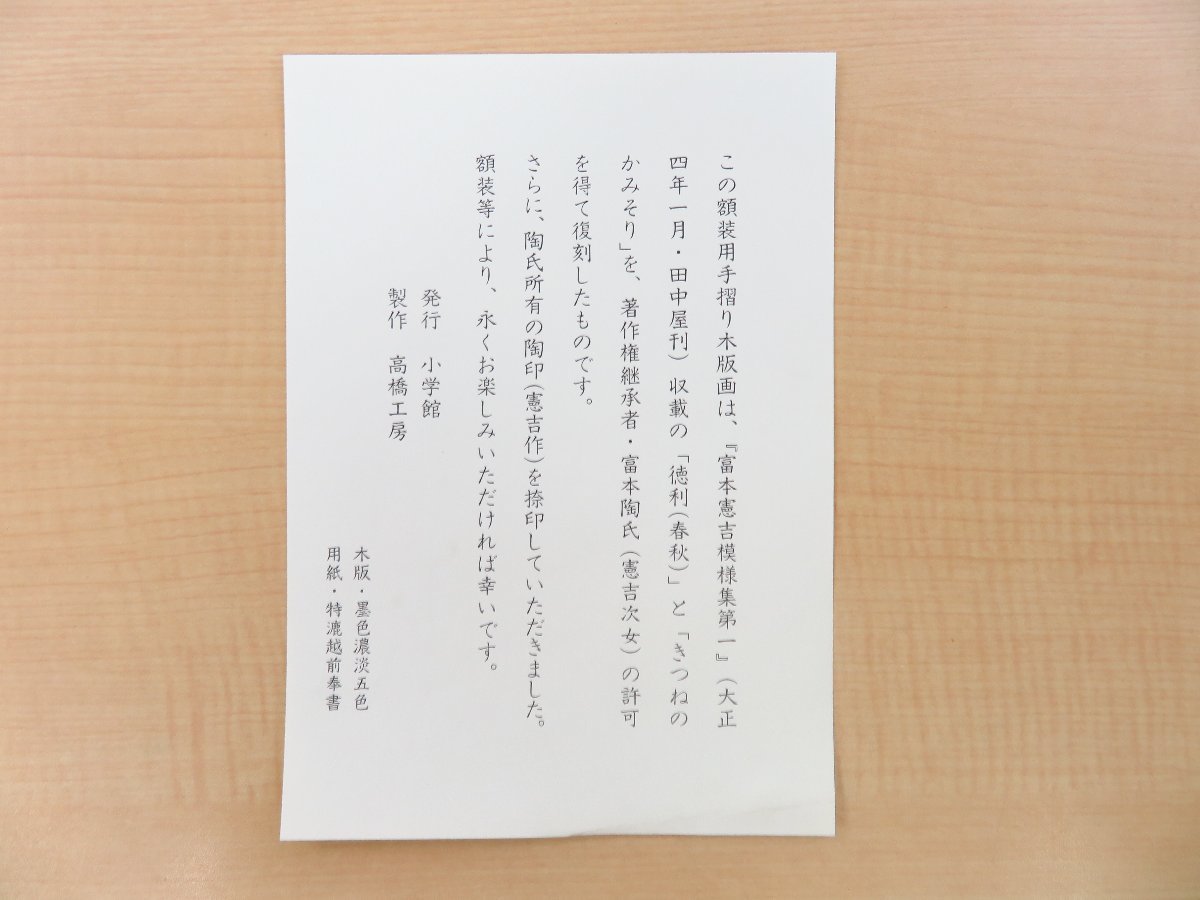 この額装用手摺り木版画は、『富本憲吉模様集第一』（大正
四年一月・田中屋刊）収載の「徳利（春秋）」と「きつねの
かみそり」を、著作権継承者・富本陶氏（憲吉次女）の許可
を得て復刻したものです。
さらに、陶氏所有の陶印（憲吉作）を捺印していただきました。
額装等により、永くお楽しみいただければ幸いです。
発行　小学館
製作　高橋工房
木版・墨色濃淡五色
用紙・特漉越前奉書